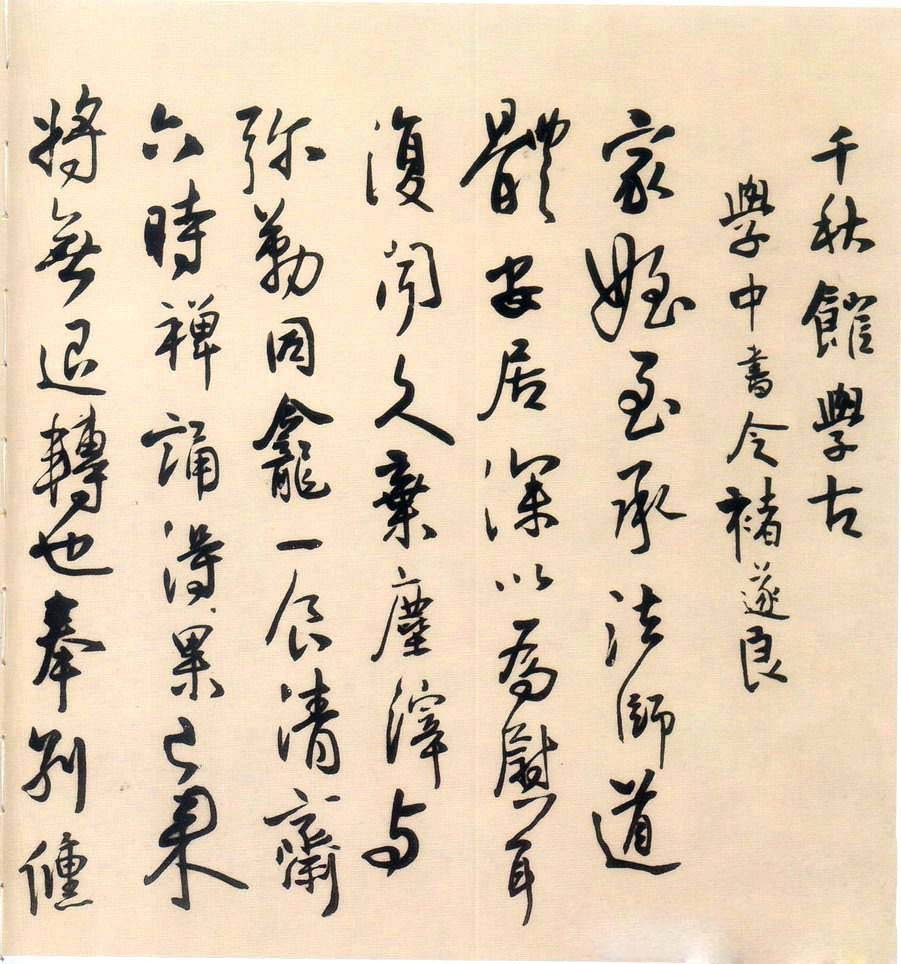 千秋館學古
學中書令褚遂良
家姪至承法師道
體安居深以為慰耳
復聞久棄塵滓与
弥勒同龕一食清齋
六時禪誦得果已來
將無退轉也奉別儵